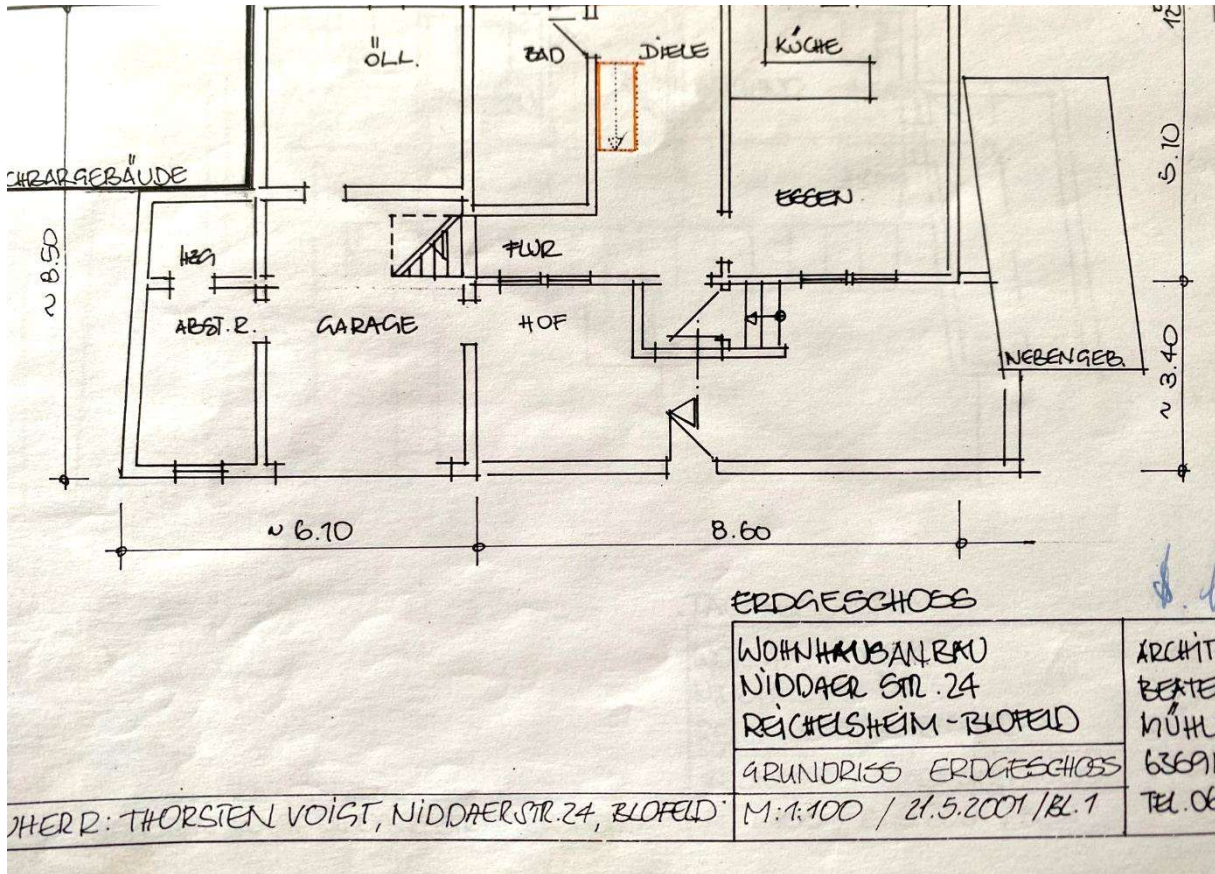 12
ÖLL.
BAD
DIELE
KÜCHE
5.10
CHBARGEBÄUDE
ESSEN
~ 8.50
HZG
FLUR
ABST. R.
GARAGE
HOF
NEBENGEB.
~ 3.40
~ 6.10
8.60
ERDGESCHOSS
WOHNHAUSANBAU
NIDDAER STR. 24
REICHELSHEIM-BLOFELD
GRUNDRISS ERDGESCHOSS
M:1:100 / 21.5.2001 /BL.1
ARCHIT
BEATE
MÜHL
6369
TEL. 06
UHERR: THORSTEN VOIGT, NIDDAERSTR.24, BLOFELD